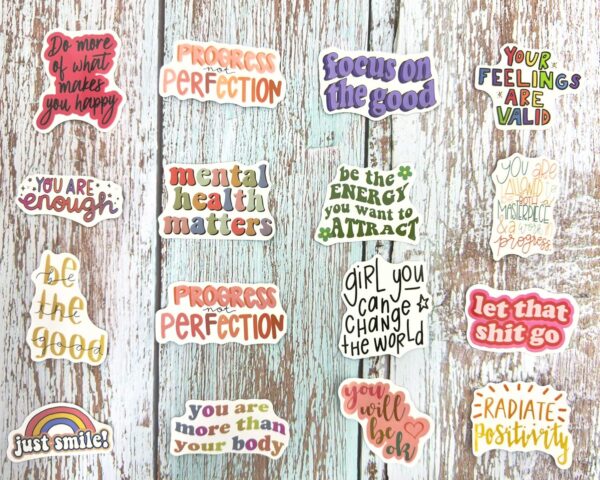 Do more
of what
makes
you happy
PROGRESS
not
PERFECTION
focus on
the good
YOUR
FEELINGS
ARE
VALID
YOU ARE
enough
mental
health
matters
be the
ENERGY
you want to
ATTRACT
you are
MASTERPIECE
& a
progress
be
the
good
PROGRESS
not
PERFECTION
girl you
cange
change
the world
let that
shit go
just smile!
you are
more than
your body
you
will
be
ok
RADIATE
positivity